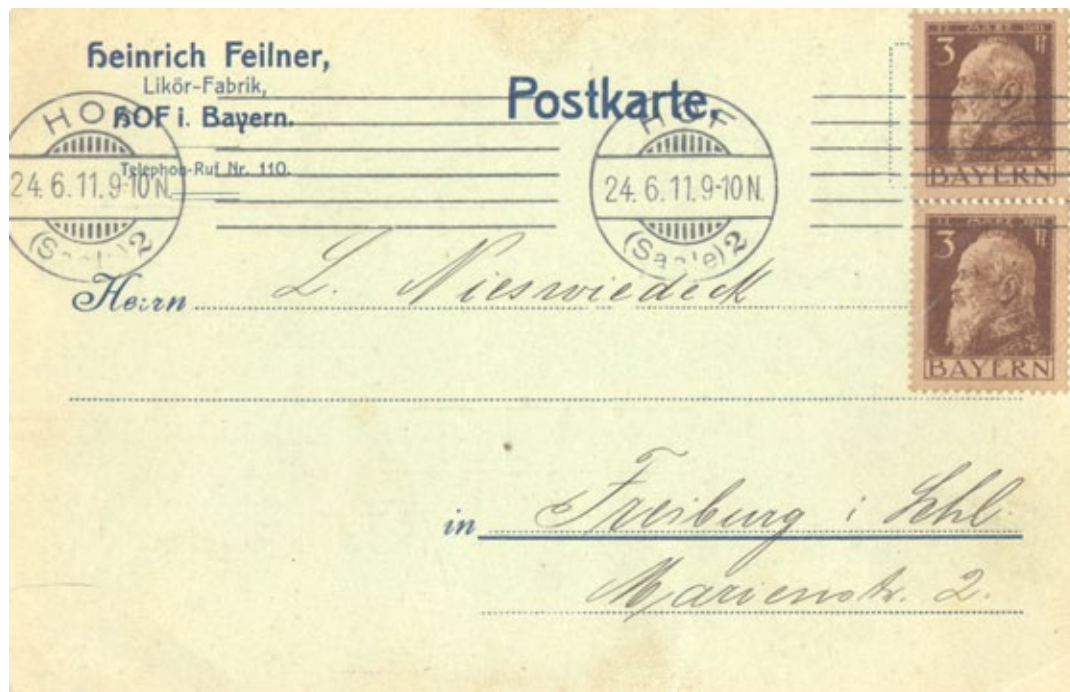 Heinrich Feilner,
Likör-Fabrik,
HOF i. Bayern.
Telephon-Ruf Nr. 110.
Postkarte.
HOF
24.6.11.9-10N.
(Saale) 2
HOF
24.6.11.9-10N.
(Saale) 2
11. MÄRZ 1911
3 Pf
BAYERN
11. MÄRZ 1911
3 Pf
BAYERN
Herrn L. Nieswiedeck
in Freiburg i Schl.
Marienstr. 2.